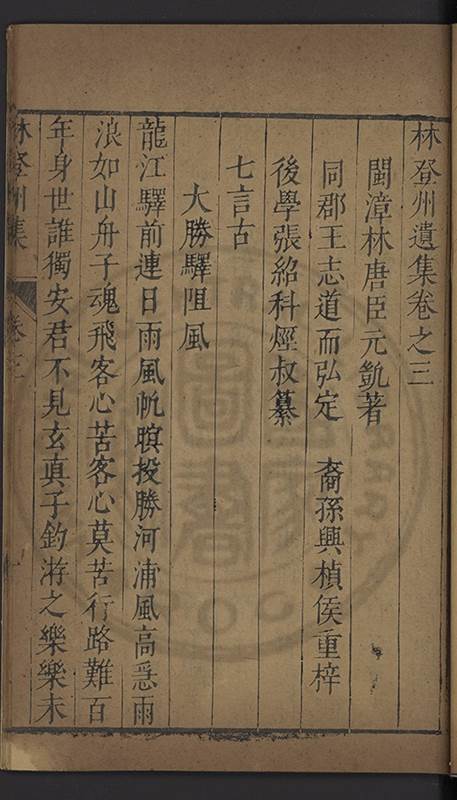 林登州遺集卷之三
閩漳林唐臣元凱著
同郡王志道而弘定 裔孫興楨侯重梓
後學張紹科烴叔纂
七言古
大勝驛阻風
龍江驛前連日雨風帆暝投勝河浦風高急雨
浪如山舟子魂飛客心苦客心莫苦行路難百
年身世誰獨安君不見玄真子釣游之樂樂未
林登州集 卷三